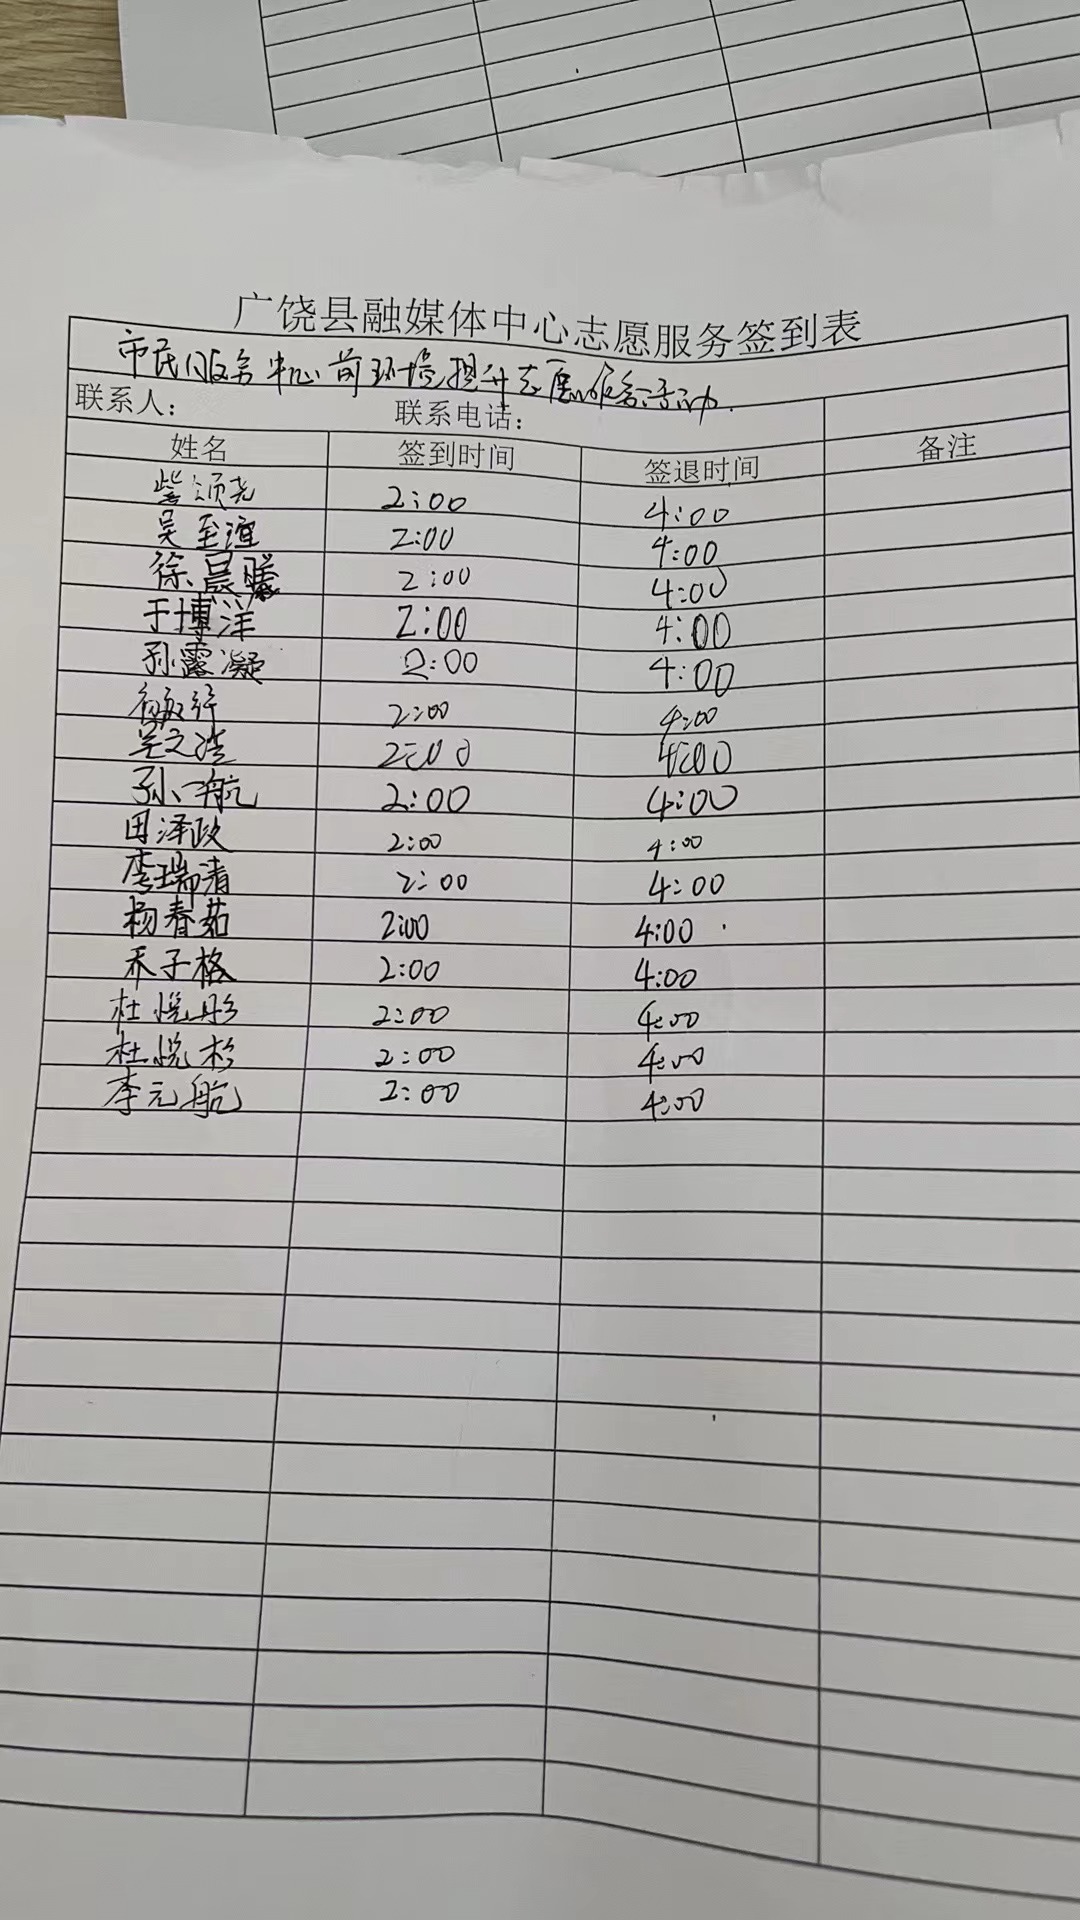 广饶县融媒体中心志愿服务签到表
市民服务中心前环境提升志愿服务活动.
联系人： 联系电话：
姓名 签到时间 签退时间 备注
2:00 4:00
吴至渲 2:00 4:00
徐晨曦 2:00 4:00
于博洋 2:00 4:00
孙露凝 2:00 4:00
2:00 4:00
2:00 4:00
孙一航 2:00 4:00
田泽政 2:00 4:00
李瑞清 2:00 4:00
杨春茹 2:00 4:00
乔子格 2:00 4:00
杜悦彤 2:00 4:00
杜悦杉 2:00 4:00
李元航 2:00 4:00